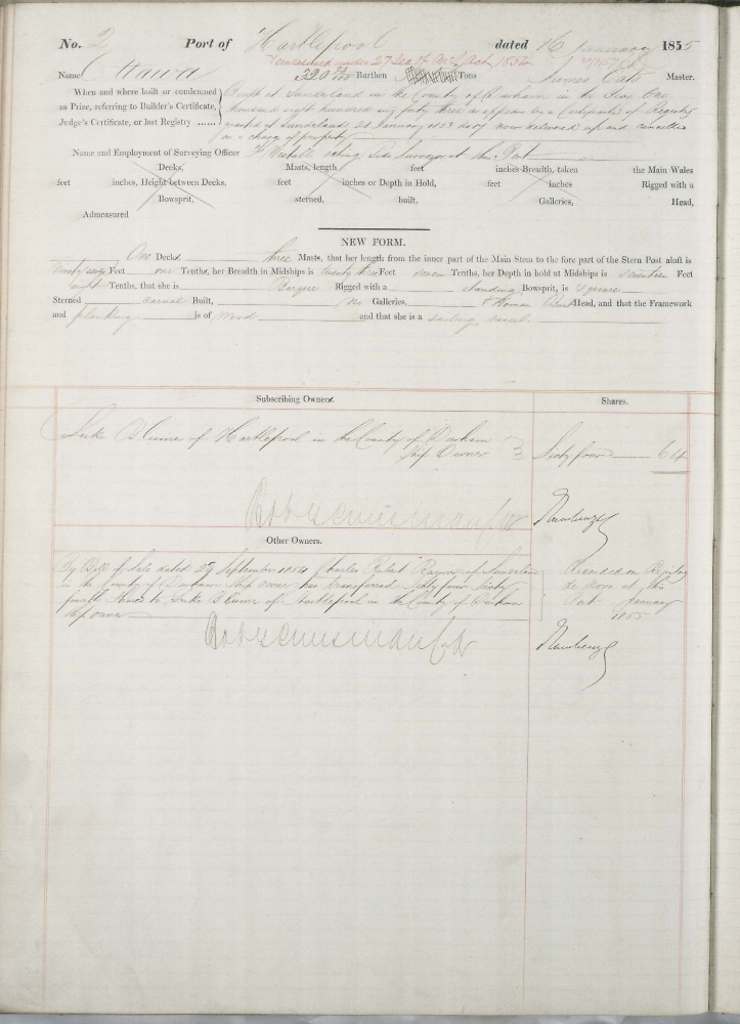 No. 2 Port of Hartlepool dated 16 January 1855
under 27 Sec of 1854
Name Ottawa 320 Burthen Tons James Cato Master.
When and where built or condemned
as Prize, referring to Builder's Certificate,
Judge's Certificate, or last Registry ......
Built at Sunderland in the County of Durham in the Year One
thousand eight hundred and forty three as appears by a Certificate of Registry
granted at Sunderland 20 January 1853 now delivered up and cancelled
on a change of property
Name and Employment of Surveying Officer acting Tide Surveyor at this Port
Decks, Masts, length feet inches Breadth, taken the Main Wales
feet inches, Height between Decks, feet inches or Depth in Hold, feet inches Rigged with a
Bowsprit, sterned, built, Galleries, Head,
Admeasured
NEW FORM.
One Decks three Masts, that her length from the inner part of the Main Stem to the fore part of the Stern Post aloft is
Ninety Feet one Tenths, her Breadth in Midships is twenty three Feet seven Tenths, her Depth in hold at Midships is seventeen Feet
eight Tenths, that she is Barque Rigged with a standing Bowsprit, is square
Sterned carvel Built, No Galleries, Woman Bust Head, and that the Framework
and planking is of Wood and that she is a sailing vessel
Subscribing Owners. Shares.
Luke Blumer of Hartlepool in the County of Durham
Ship Owner Sixty four 64
Other Owners.
By Bill of Sale dated 27 September 1854 Charles Robert of Sunderland
in the County of Durham Ship owner has transferred Sixty four Sixty
fourth Shares to Luke Blumer of Hartlepool in the County of Durham
Ship owner
Recorded on Registry
de Novo at this
Port January
1855